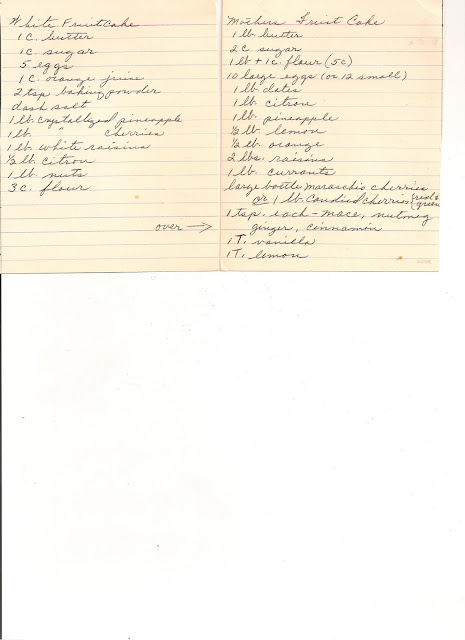 White Fruitcake
1 c. butter
1 c. sugar
5 eggs
1 c. orange juice
2 tsp baking powder
dash salt
1 lb. crystallized pineapple
1 lb. " cherries
1 lb. white raisins
½ lb. citron
1 lb. nuts
3 c. flour
over →
Mothers Fruit Cake
1 lb. butter
2 c sugar
1 lb + 1 c. flour (5 c)
10 large eggs (or 12 small)
1 lb. dates
1 lb. citron
1 lb. pineapple
½ lb. lemon
½ lb. orange
2 lbs. raisins
1 lb. currants
large bottle Maraschio cherries
or 1 lb. Candied cherries (red & green
1 tsp. each - mace, nutmeg
ginger, cinnamon
1 T. vanilla
1 T. lemon